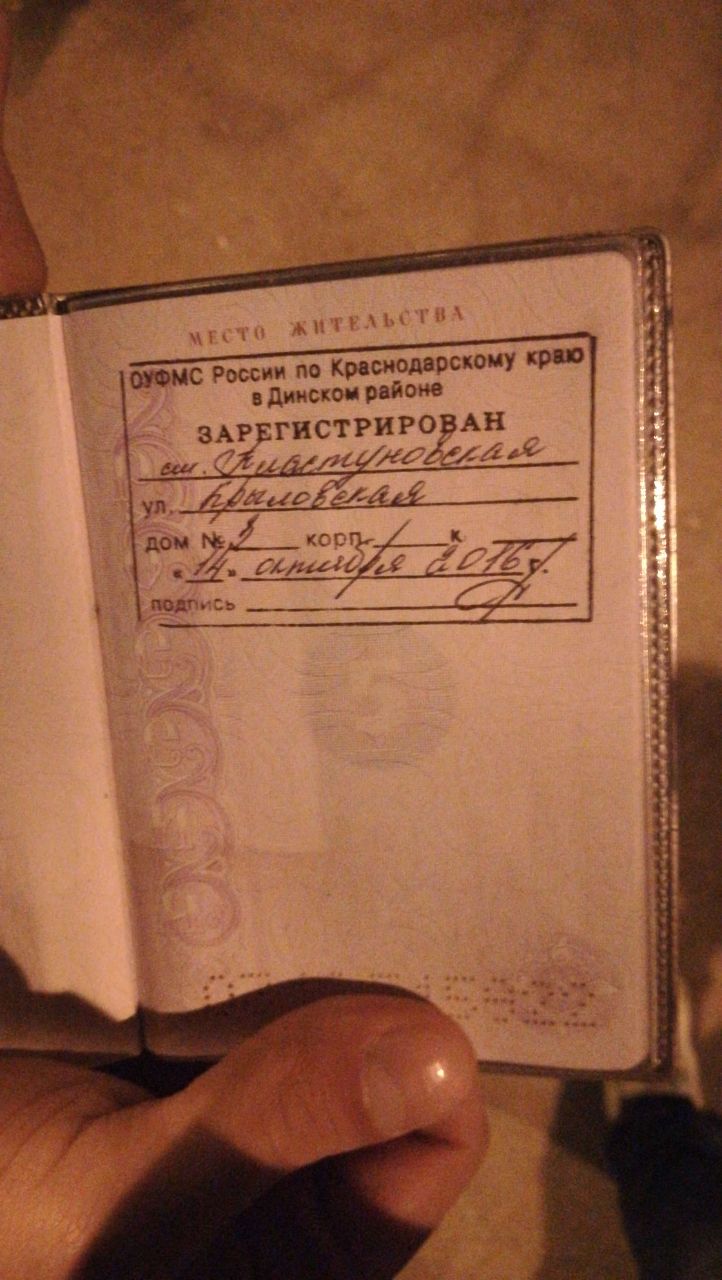 МЕСТО ЖИТЕЛЬСТВА
ОУФМС России по Краснодарскому краю
в Динском районе
ЗАРЕГИСТРИРОВАН
ст. Пластуновская
ул. Крыловская
дом № 3 корп. / к
"14" октября 2016 г.
подпись